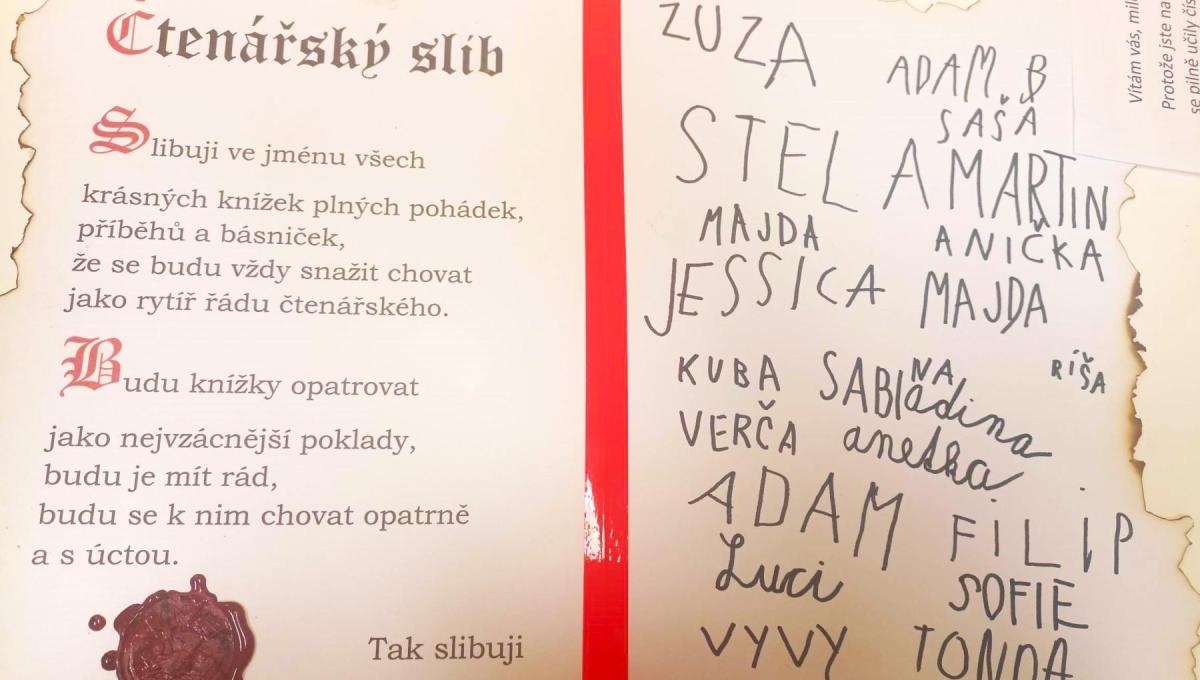 Čtenářský slib
Slibuji ve jménu všech
krásných knížek plných pohádek,
příběhů a básniček,
že se budu vždy snažit chovat
jako rytíř řádu čtenářského.
Budu knížky opatrovat
jako nejvzácnější poklady,
budu je mít rád,
budu se k nim chovat opatrně
a s úctou.
Tak slibuji
ZUZA
ADAM.B
SAŠA
STELA MARTIN
MAJDA ANIČKA
JESSICA MAJDA
KUBA SABINA RÍŠA
ádina
VERČA anetka
ADAM FILIP
Luci SOFIE
VYVY TONDA
Vítám vás, milí
Protože jste na
se pilně učily čís